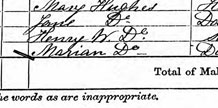 Mary Hughes
Jane Do
Henry W. Do
Marian Do
Total of Mal
he words as are inappropriate.